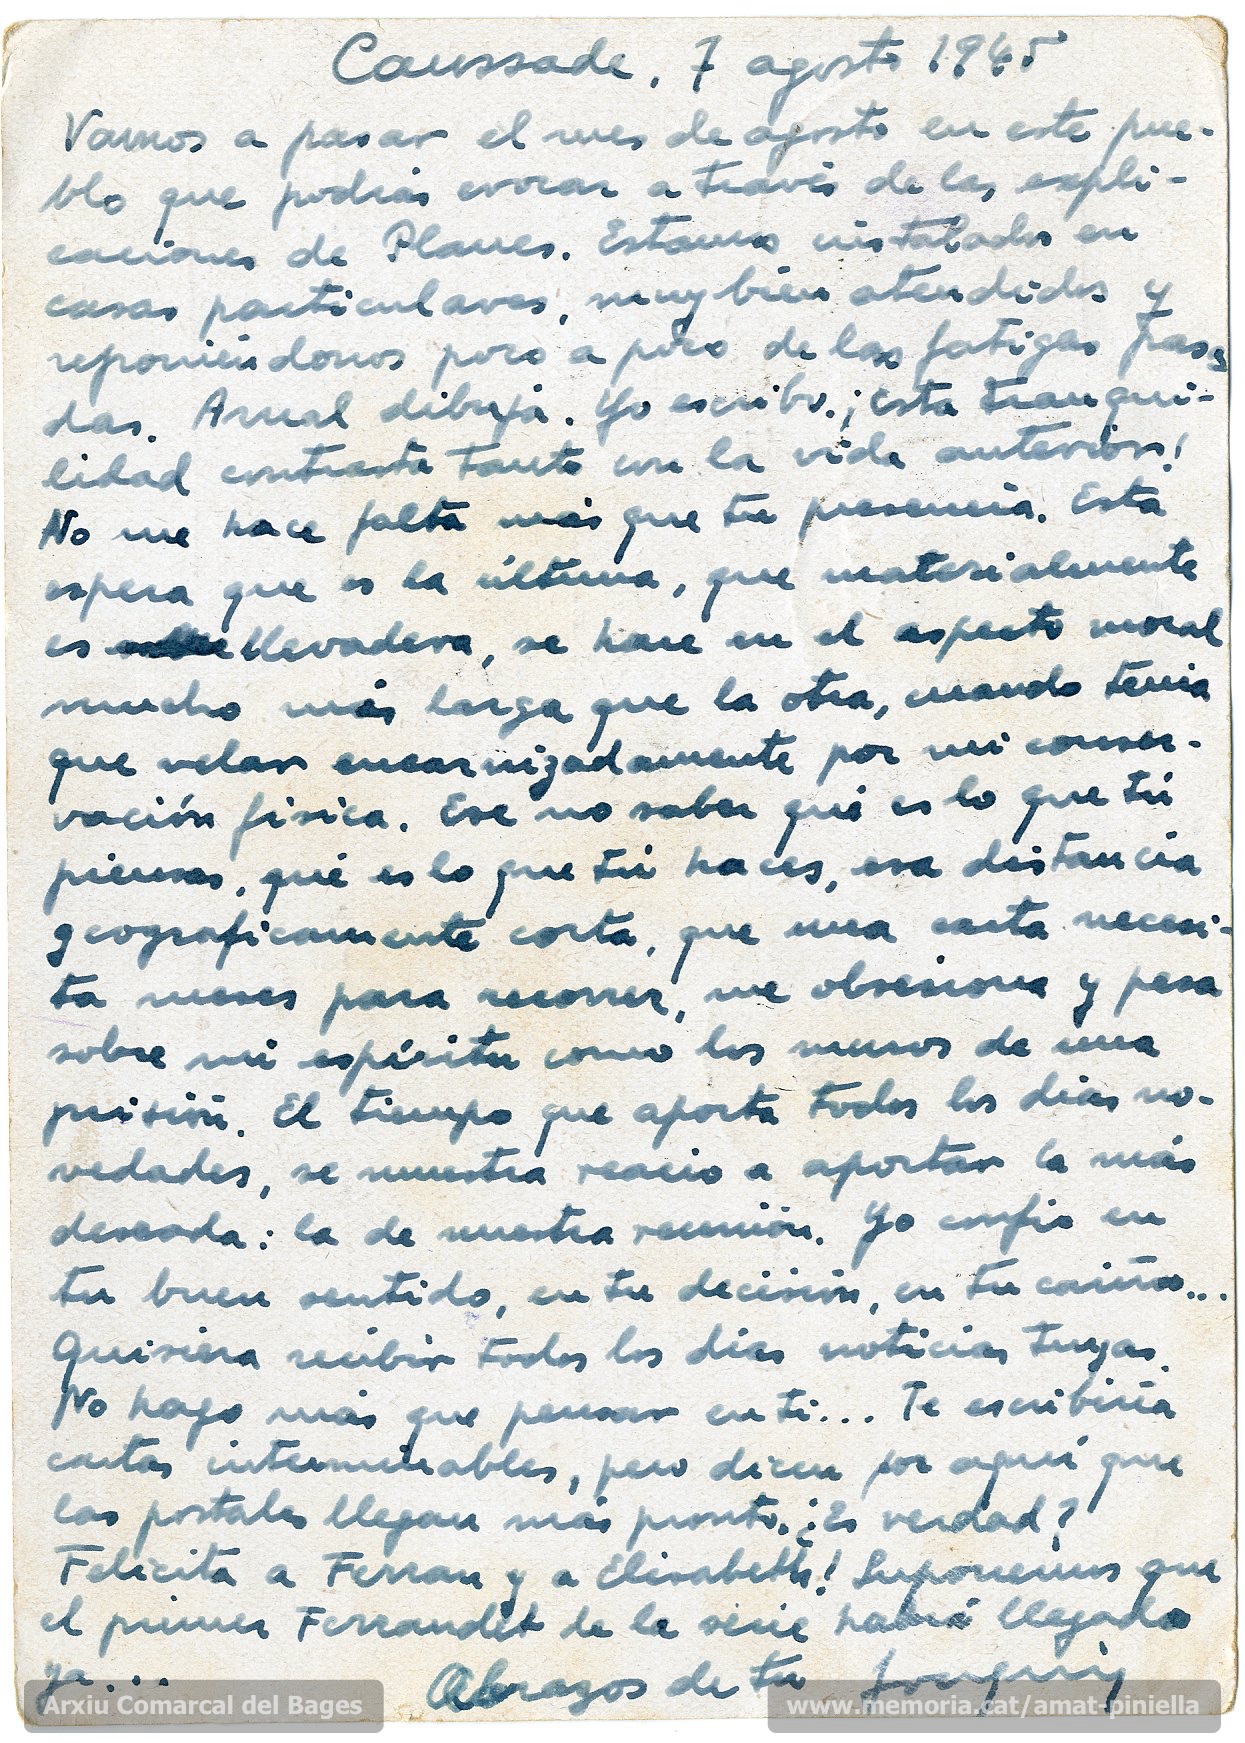 Caussade, 7 agosto 1945
Vamos a pasar el mes de agosto en este pue-
blo que podrás evocar a través de las expli-
caciones de Planes. Estamos instalados en
casas particulares, muy bien atendidos y
reponiéndonos poco a poco de las fatigas pasa
das. Arnal dibuja. Yo escribo. ¡Esta tranqui-
lidad contrasta tanto con la vida anterior!
No me hace falta más que tu presencia. Esta
espera que es la última, que materialmente
es llevadera, se hace en el aspecto moral
mucho más larga que la otra, cuando tenía
que velar encarnizadamente por mi conser-
vación física. Ese no saber qué es lo que tú
piensas, qué es lo que tú haces, esa distancia
geograficamente corta, que una carta necesi-
ta meses para recorrer, me obsesiona y pesa
sobre mi espíritu como los muros de una
prisión. El tiempo que aporta todos los días no-
vedades, se muestra reacio a aportar la más
deseada: la de nuestra reunión. Yo confío en
tu buen sentido, en tu decisión, en tu cariño...
Quisiera recibir todos los días noticias tuyas.
No hago más que pensar en ti... Te escribiría
cartas interminables, pero dicen por aquí que
las postales llegan más pronto. ¿Es verdad?
Felicita a Ferran y a Elisabeth! Suponemos que
el primer Ferrandet de la serie habrá llegado
ya... Abrazos de tu Joaquín
Arxiu Comarcal del Bages
www.memoria.cat/amat-piniella